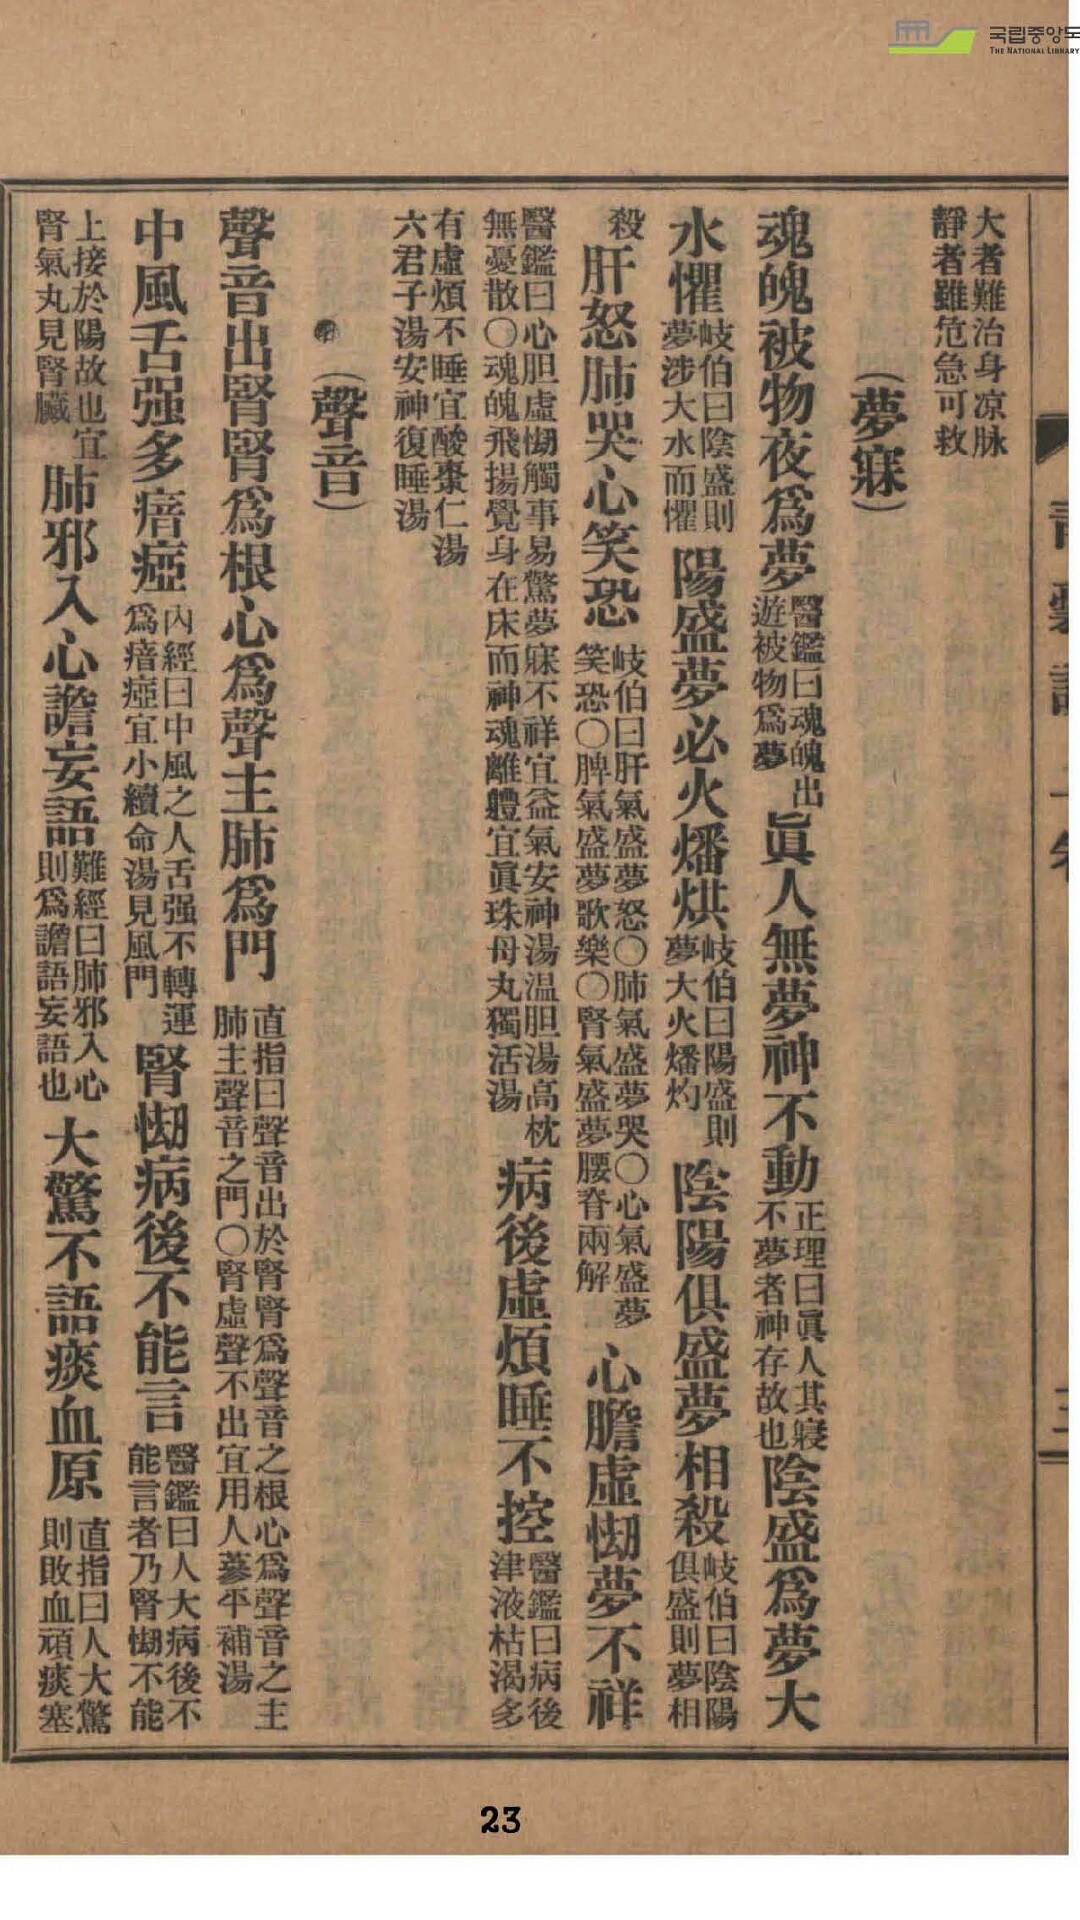 국립중앙도
THE NATIONAL LIBRARY
大者難治身凉脉
靜者雖危急可救
（夢寐）
魂魄被物夜爲夢 醫鑑曰魂魄出遊被物爲夢 眞人無夢神不動 正理曰眞人其寢不夢者神存故也 陰盛爲夢大
水懼 岐伯曰陰盛則夢涉大水而懼 陽盛夢必火燔烘 岐伯曰陽盛則夢大火燔灼 陰陽俱盛夢相殺 岐伯曰陰陽俱盛則夢相
殺 肝怒肺哭心笑恐 岐伯曰肝氣盛夢怒〇肺氣盛夢哭〇心氣盛夢笑恐〇脾氣盛夢歌樂〇腎氣盛夢腰脊兩解 心膽虛㤼夢不祥
醫鑑曰心胆虛㤼觸事易驚夢寐不祥宜益氣安神湯温胆湯高枕無憂散〇魂魄飛揚覺身在床而神魂離軆宜眞珠母丸獨活湯 病後虛煩睡不控 醫鑑曰病後津液枯渴多
有虛煩不睡宜酸棗仁湯
六君子湯安神復睡湯
（聲音）
聲音出腎腎爲根心爲聲主肺爲門 直指曰聲音出於腎腎爲聲音之根心爲聲音之主肺主聲音之門〇腎虛聲不出宜用人蔘平補湯
中風舌强多瘖瘂 內經曰中風之人舌强不轉運爲瘖瘂宜小續命湯見風門 腎㤼病後不能言 醫鑑曰人大病後不能言者乃腎㤼不能
上接於陽故也宜腎氣丸見腎臟 肺邪入心譫妄語 難經曰肺邪入心則爲譫語妄語也 大驚不語痰血原 直指曰人大驚則敗血頑痰塞
23